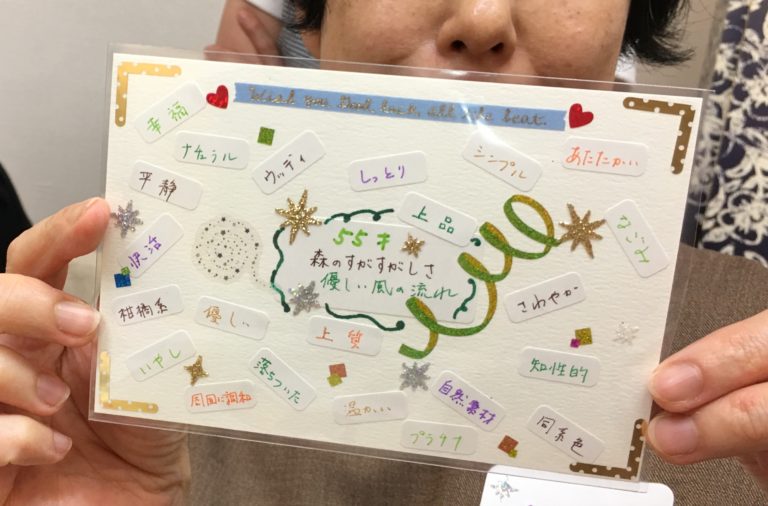 Wish you good luck, all the best.
幸福
ナチュラル
ウッディ
しっとり
シンプル
あたたかい
平静
上品
なごみ
快活
55才
森のすがすがしさ
優しい風の流れ
柑橘系
優しい
さわやか
上質
いやし
落ちついた
知性的
周囲に調和
温かい
自然素材
同系色
プラチナ